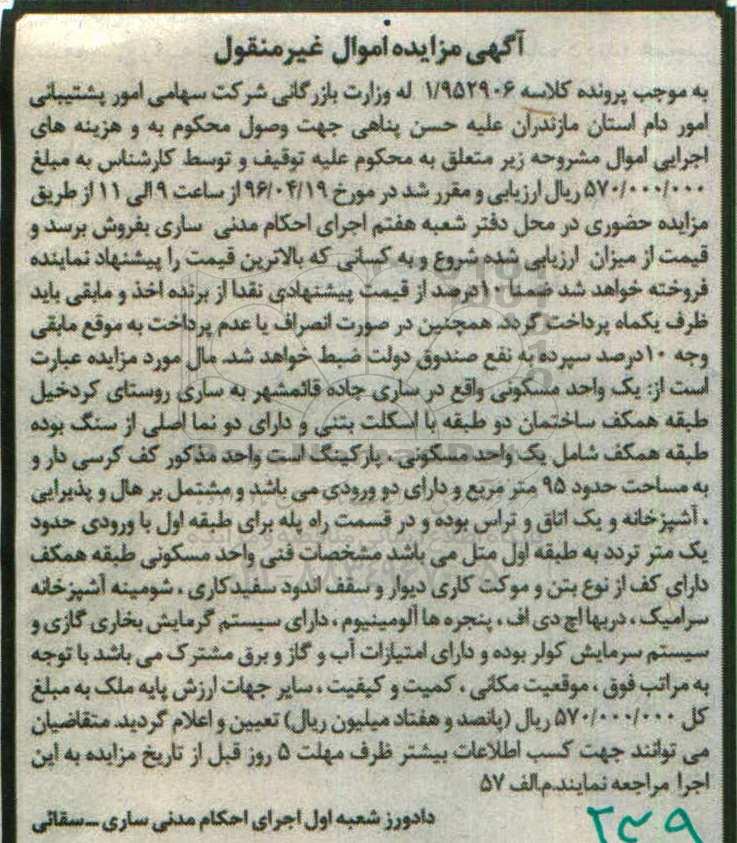 آگهی مزایده اموال غیرمنقول
به موجب پرونده کلاسه ۱/۹۵۲۹۰۶ له وزارت بازرگانی شرکت سهامی امور پشتیبانی
امور دام استان مازندران علیه حسن پناهی جهت وصول محکوم به و هزینه های
اجرایی اموال مشروحه زیر متعلق به محکوم علیه توقیف و توسط کارشناس به مبلغ
۵۷۰/۰۰۰/۰۰۰ ریال ارزیابی و مقرر شد در مورخ ۹۶/۰۴/۱۹ از ساعت ۹ الی ۱۱ از طریق
مزایده حضوری در محل دفتر شعبه هفتم اجرای احکام مدنی ساری بفروش برسد و
قیمت از میزان ارزیابی شده شروع و به کسانی که بالاترین قیمت را پیشنهاد نماینده
فروخته خواهد شد ضمنا ۱۰درصد از قیمت پیشنهادی نقدا از برنده اخذ و مابقی باید
ظرف یکماه پرداخت گردد. همچنین در صورت انصراف یا عدم پرداخت به موقع مابقی
وجه ۱۰درصد سپرده به نفع صندوق دولت ضبط خواهد شد. مال مورد مزایده عبارت
است از: یک واحد مسکونی واقع در ساری جاده قائمشهر به ساری روستای کردخیل
طبقه همکف ساختمان دو طبقه با اسکلت بتنی و دارای دو نما اصلی از سنگ بوده
طبقه همکف شامل یک واحد مسکونی، پارکینگ است واحد مذکور کف کرسی دار و
به مساحت حدود ۹۵ متر مربع و دارای دو ورودی می باشد و مشتمل بر هال و پذیرایی
، آشپزخانه و یک اتاق و تراس بوده و در قسمت راه پله برای طبقه اول با ورودی حدود
یک متر تردد به طبقه اول متل می باشد مشخصات فنی واحد مسکونی طبقه همکف
دارای کف از نوع بتن و موکت کاری دیوار و سقف اندود سفیدکاری ، شومینه آشپزخانه
سرامیک ، دربها اچ دی اف ، پنجره ها آلومینیوم ، دارای سیستم گرمایش بخاری گازی و
سیستم سرمایش کولر بوده و دارای امتیازات آب و گاز و برق مشترک می باشد با توجه
به مراتب فوق ، موقعیت مکانی ، کمیت و کیفیت ، سایر جهات ارزش پایه ملک به مبلغ
کل ۵۷۰/۰۰۰/۰۰۰ ریال (پانصد و هفتاد میلیون ریال) تعیین و اعلام گردید. متقاضیان
می توانند جهت کسب اطلاعات بیشتر ظرف مهلت ۵ روز قبل از تاریخ مزایده به این
اجرا مراجعه نمایند.م.الف ۵۷
دادورز شعبه اول اجرای احکام مدنی ساری ـ سقائی
۲۳۹